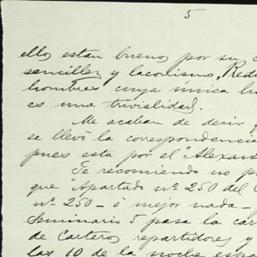 5
ellos estan buenos por su
sencillez y laconismo. Red
hombres cuya única
es una trivialidad.
Me acaban de decir
se llevó la correspondencia
pues esta por el "Alexan
Te recomiendo no p
que "Apartado nº 250 del
nº 250 – ó mejor nada –
Seminario 5 pasa la car
de Carteros repartidores y
las 10 de la noche esp